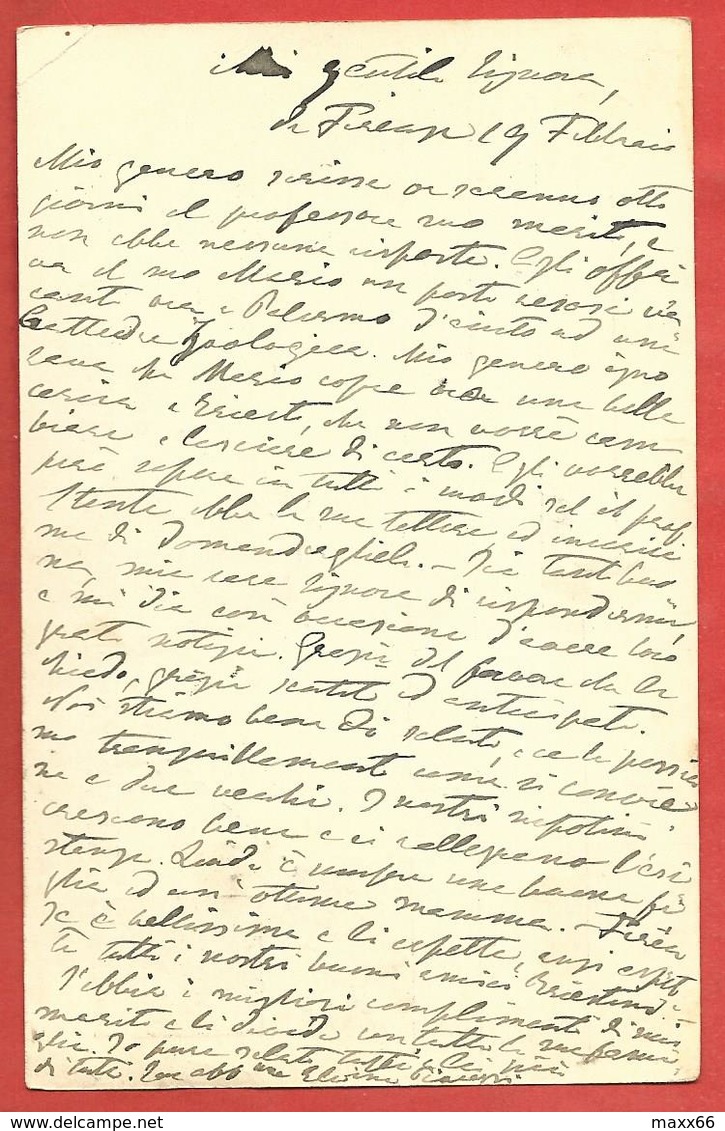 Mia gentile Signora,
da Firenze 19 Febbraio
Mio genero scrisse or saranno otto
giorni al professore suo marito, e
non ebbe nessuna risposta. Egli offri
va al suo Mario un posto
vacante ora a Palermo d'aiuto ad una
Cattedra Zoologica. Mio genero igno
rava che Mario copre ora una bella
carica a Trieste, che non vorrà cam
biare e lasciare di certo. Egli vorrebbe
però sapere in tutti i modi se il prof.
Stenta ebbe la sua lettera, ed incarica
me di domandarglielo. - Sia tanto buo
na, mia cara Signora di rispondermi,
e mi dia così occasione d'avere loro
grate notizie. Grazie del favore che le
chiedo, grazie sentite ed anticipate.
Noi stiamo bene di salute, e ce la passia
mo tranquillamente come si convie
ne a due vecchi. I nostri nipotini
crescono bene e ci rallegrano l'esi
stenza. è sempre una buona fi
glia ed un' ottima mamma. - Firen
ze è bellissima e li aspetta, anzi aspet
ta tutti i nostri buoni amici Triestini.
S'abbia i migliori complimenti di mio
marito e li divida con tutta la sua fami
glia. Io pure saluto tutti e le
di tutti. Sua aff.ma Elvira
maxx66